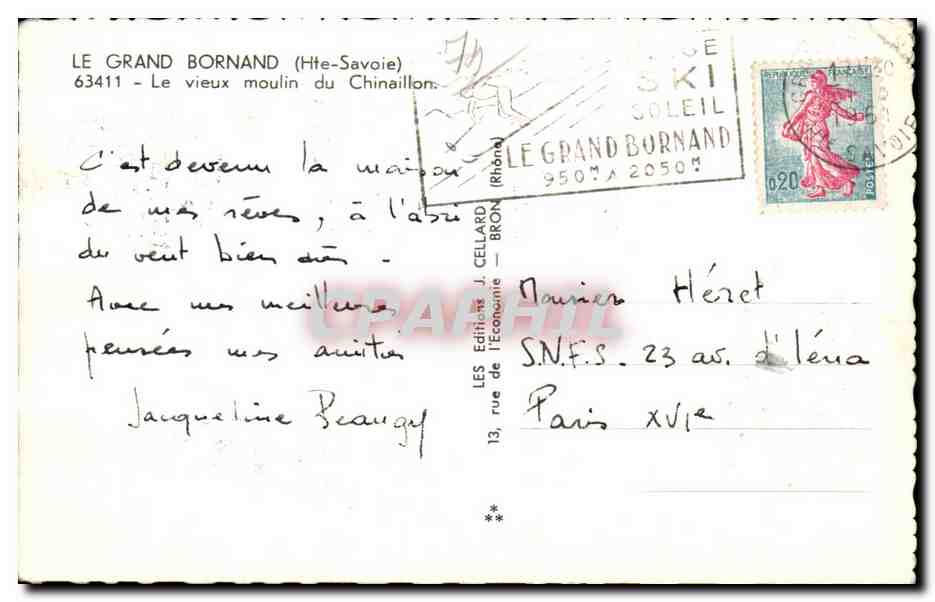 LE GRAND BORNAND (Hte-Savoie)
63411 - Le vieux moulin du Chinaillon
74
SKI
SOLEIL
LE GRAND BORNAND
950M A 2050M
REPUBLIQUE FRANÇAISE
0,20
POSTES
SAVOIE
C'est devenu la maison
de mes rêves, à l'abri
du vent bien sûr -
Avec mes meilleures
pensées mes amitiés
Jacqueline Beaugy
LES Editions J. CELLARD
13, rue de l'Economie — BRON (Rhône)
Monsieur Héret
S.N.F.S - 23 av. d'Iéna
Paris XVIe
CPAPHIL